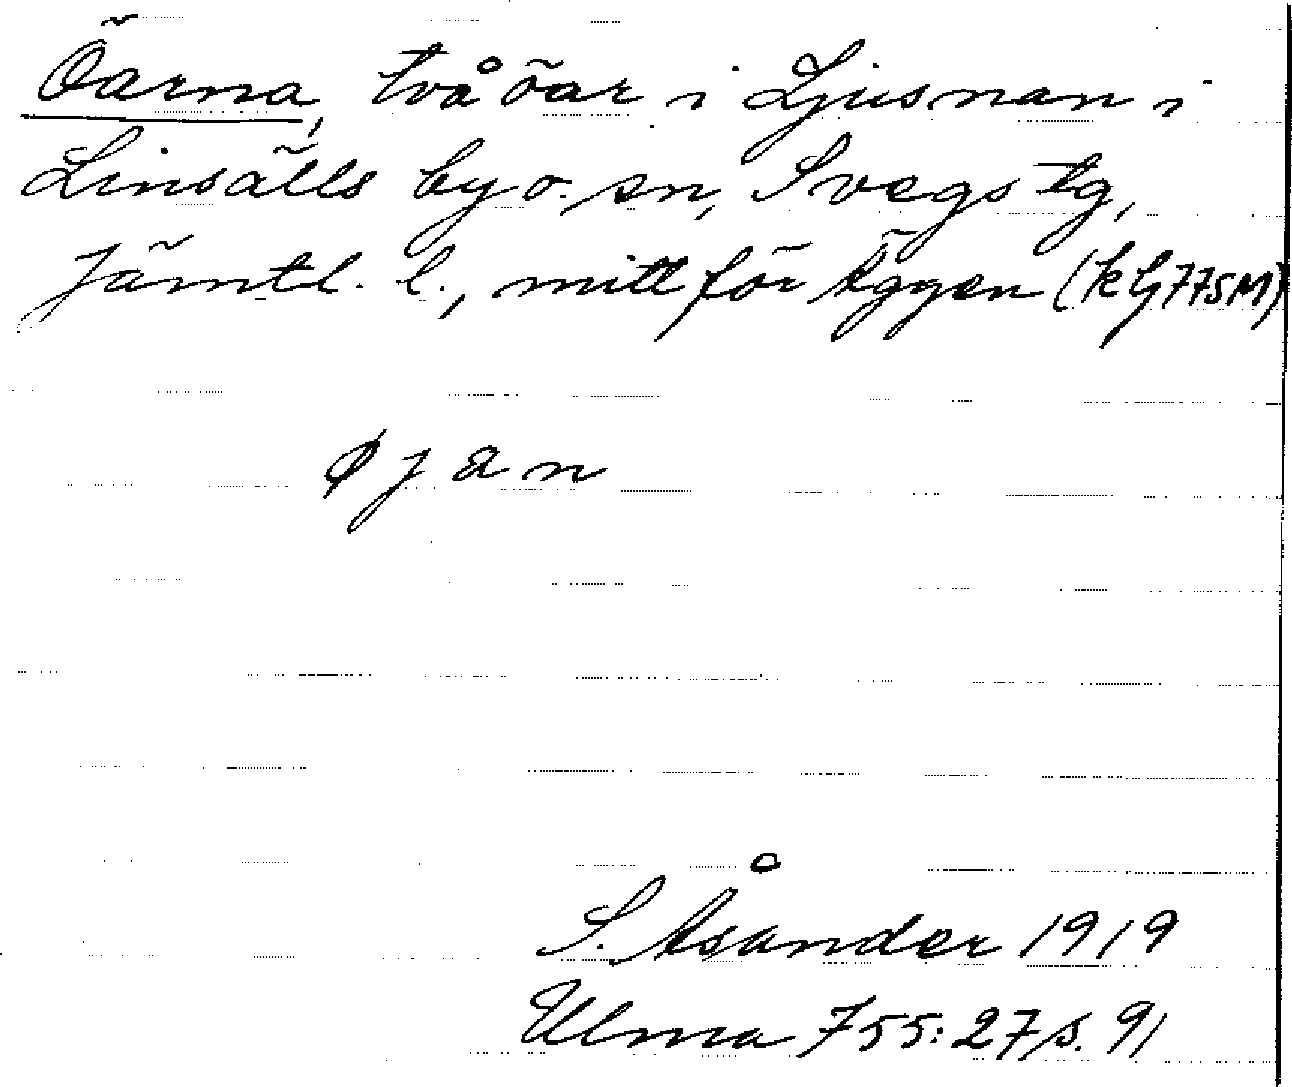 Öarna, två öar i Ljusnan i
Linsälls by o. sn, Svegs tg,
Jämtl. l., mitt för Äggen (klj775M)
øjan
S. Åsander 1919
Ulma 755:27 s. 91